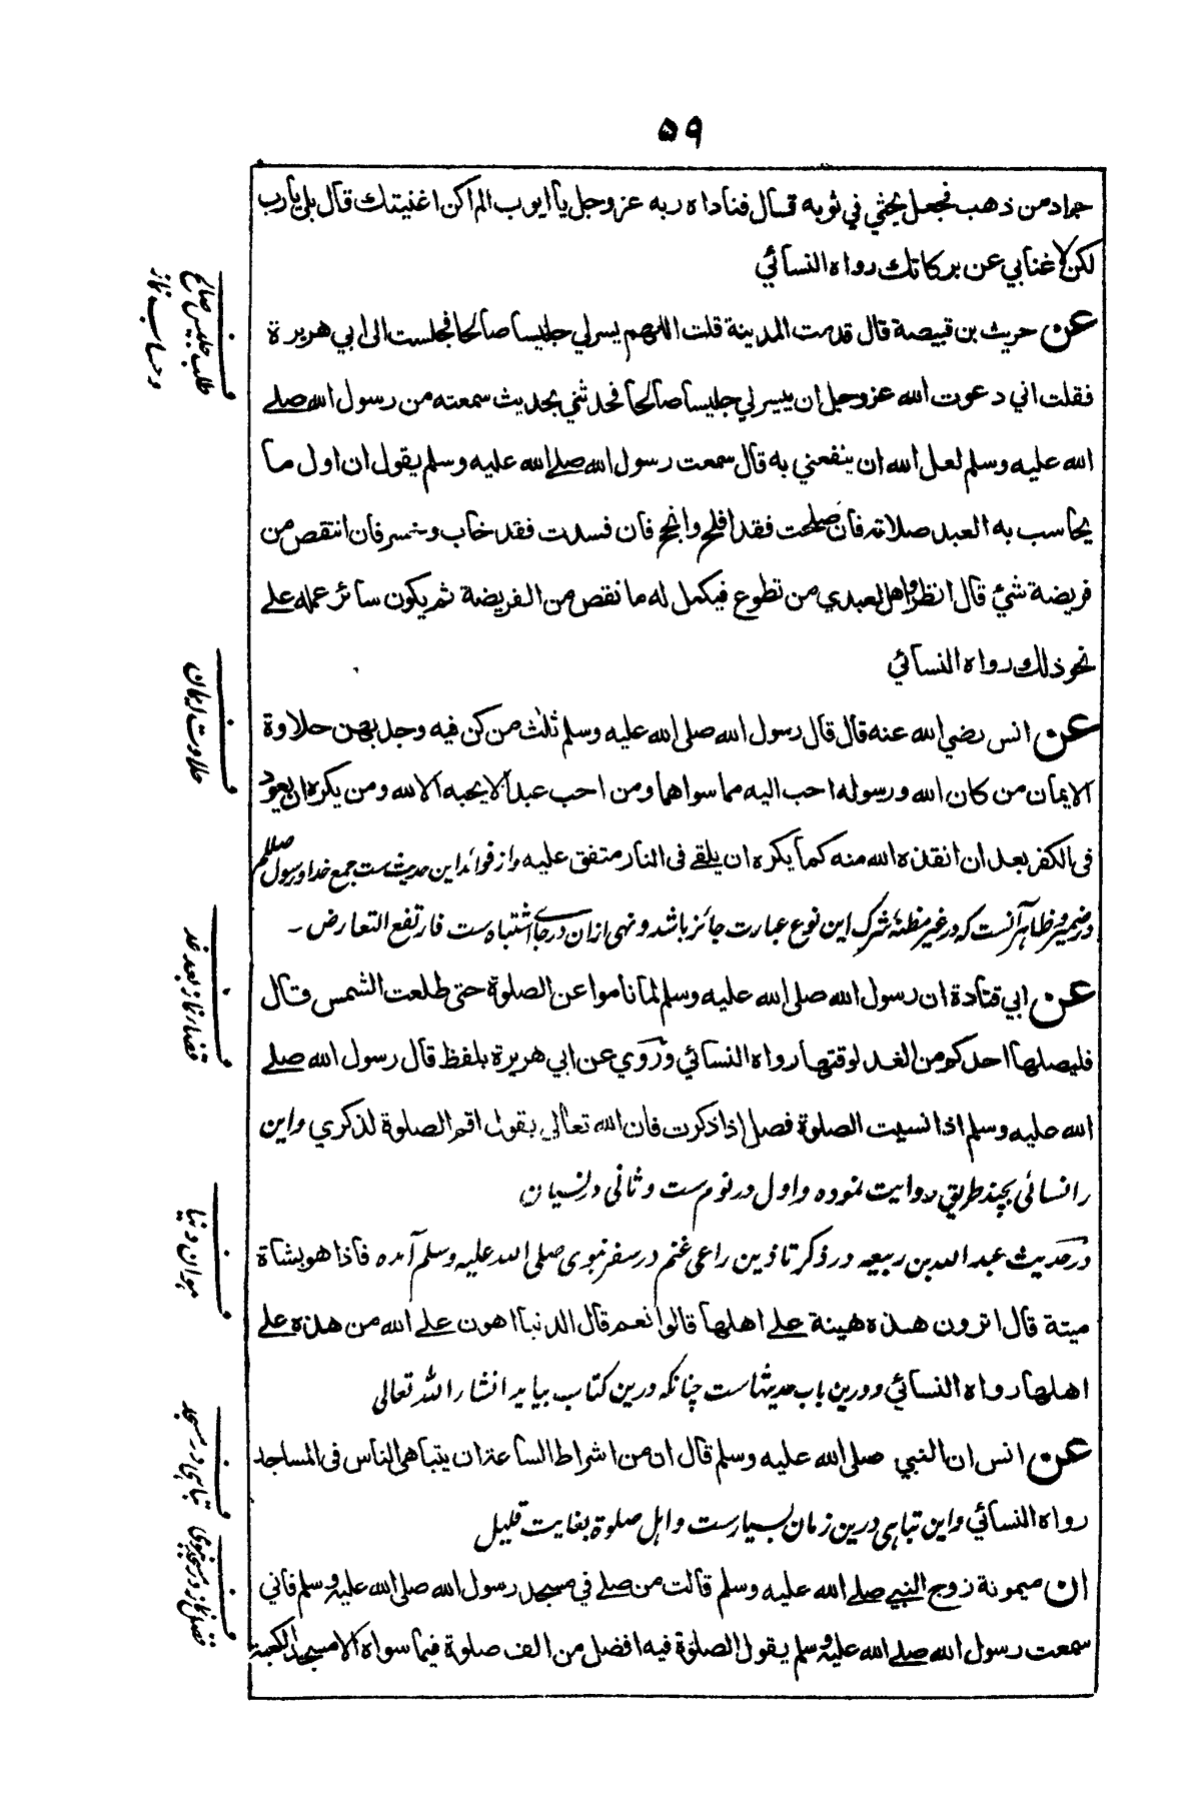 ۵۹
جراد من ذهب فجعل يحثي في ثوبه قسال فناداه ربه عز وجل يا ايوب الم اكن اغنيتك قال بلى يا رب
لكن لا غنا بي عن بركاتك رواه النسائي
عن حريث بن قبيصة قال قدمت المدينة قلت اللهم يسر لي جليسا صالحا فجلست الى ابي هريرة
فقلت اني دعوت الله عز وجل ان ييسر لي جليسا صالحا فحدثني بحديث سمعته من رسول الله صلے
الله عليه وسلم لعل الله ان ينفعني به قال سمعت رسول الله صلے الله عليه وسلم يقول ان اول ما
يحاسب به العبد صلاته فان صلحت فقد افلح وانجح فان فسدت فقد خاب وخسر فان انتقص من
فريضة شئ قال انظروا هل لعبدي من تطوع فيكمل له ما نقص من الفريضة ثم يكون سائر عمله علے
نحو ذلك رواه النسائي
عن انس رضي الله عنه قال قال رسول الله صلى الله عليه وسلم ثلث من كن فيه وجد بهن حلاوة
الايمان من كان الله ورسوله احب اليه مما سواهما ومن احب عبدا لا يحبه الا لله ومن يكره ان يعود
فى الكفر بعد ان انقذه الله منه كما يكره ان يلقے فى النار متفق عليه واز فوائد این حدیث ست جمع خدا و رسول صللم
در ضمیر و ظاہر آنست که در غیر مظنۂ شرک این نوع عبارت جائز باشد و نهی ازان در جای اشتباه ست فارتفع التعارض ـ
عن ابي قتادة ان رسول الله صلى الله عليه وسلم لما ناموا عن الصلوة حتى طلعت الشمس قال
فليصلها احدكم من الغد لوقتها رواه النسائي وروي عن ابي هريرة بلفظ قال رسول الله صلے
الله عليه وسلم اذا نسيت الصلوة فصل اذا ذكرت فان الله تعالى يقول اقم الصلوة لذكري واین
را نسائی بچند طریق روایت نموده و اول در نوم ست و ثانی در نسیان
در حدیث عبد الله بن ربیعه در ذکر تاذین راعی غنم در سفر نبوی صلی الله علیه وسلم آمده فاذا هو بشاة
ميتة قال اترون هذه هينة علے اهلها قالوا نعم قال الدنيا اهون علے الله من هذه علے
اهلها رواه النسائي و درین باب حدیثهاست چنانکه درین کتاب بیاید انشاء الله تعالی
عن انس ان النبي صلى الله عليه وسلم قال ان من اشراط الساعة ان يتباهى الناس فى المساجد
رواه النسائي و این تباهی درین زمان بسیارست و اهل صلوة بغایت قلیل
ان ميمونة زوج النبي صلے الله عليه وسلم قالت من صلے في مسجد رسول الله صلى الله عليه وسلم فاني
سمعت رسول الله صلے الله عليه وسلم يقول الصلوة فيه افضل من الف صلوة فيما سواه الا مسجد الكعبة
ف
طلب جلیس صالح
و حساب نماز
ف
حلاوت ایمان
ف
قضاء نماز بعد غد
ف
هوان دنیا
ف
تباهی در مسجد
ف
فضل نماز در مسجد نبوی